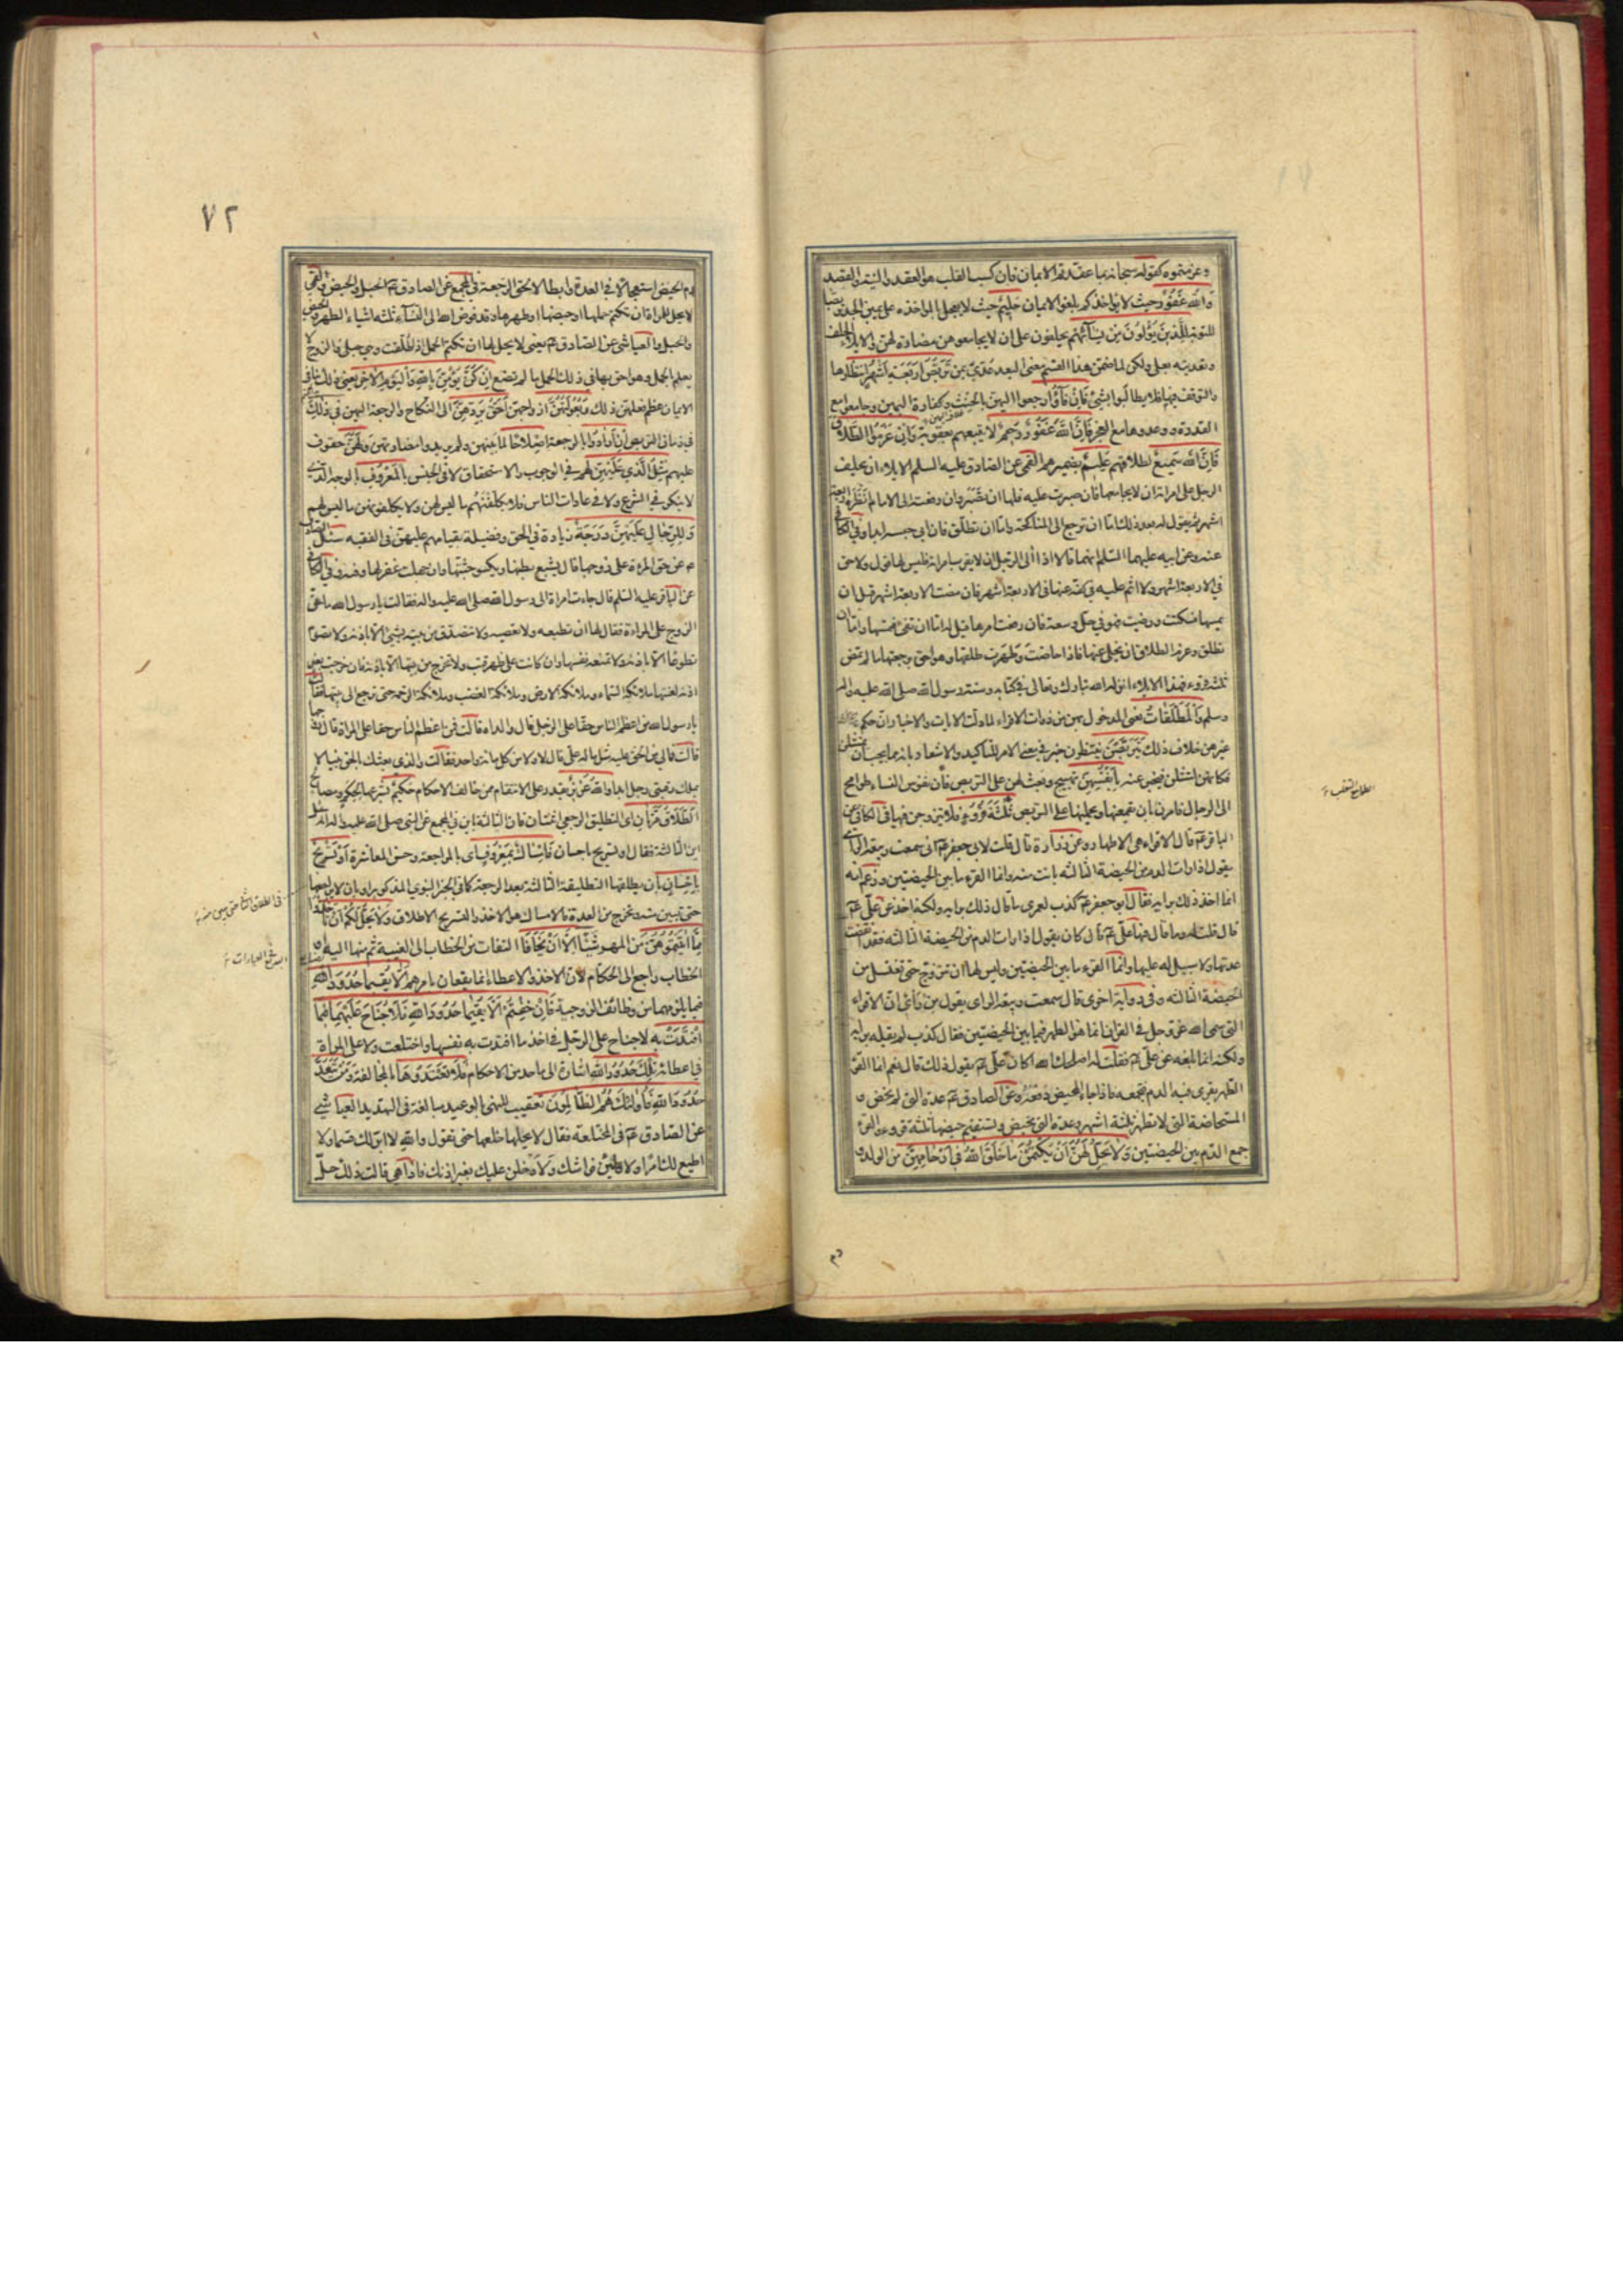 وعزمتموه كقوله سبحانه بما عقدتم الايمان فان كسب القلب هو العقد والنية والقصد
والله غفور حيث لا يؤاخذكم بلغو الايمان حليم حيث لا يعجل بالمؤاخذة على يمين الجد تربصا
للتوبة للذين يؤلون من نسائهم يحلفون على ان لا يجامعوهن مضادة لهن والايلاء الحلف
وتعديته بعلى ولكن لما ضمن هذا القسم معنى البعد عدي بمن تربص اربعة اشهر انتظارها
والتوقف فيها فلا يطالبوا بشئ فان فاؤا رجعوا اليهن بالحنث وكفارة اليمين وجامعوا مع
القدرة ووعدوها مع العجز فان الله غفور رحيم لا يتبعهم بعقوبة وان عزموا الطلاق
فان الله سميع لطلاقهم عليم بضميرهم القمي عن الصادق عليه السلم الايلاء ان يحلف
الرجل على امراته ان لا يجامعها فان صبرت عليه فلها ان تصبر وان رفعته الى الامام انظره اربعة
اشهر ثم يقول له بعد ذلك اما ان ترجع الى المناكحة واما ان تطلق فان ابى حبسه ابدا وفي الكافي
عنه وعن ابيه عليهما السلم انهما قالا اذا آلى الرجل ان لا يقرب امراته فليس لها قول ولا حق
في الاربعة اشهر ولا اثم عليه في كفه عنها في الاربعة اشهر فان مضت الاربعة اشهر قبل ان
يمسها فسكتت ورضيت فهو في حل وسعة فان رفعت امرها قيل له اما ان تفئ فتمسها واما ان
تطلق وعزم الطلاق ان يخلي عنها فاذا حاضت وطهرت طلقها وهو احق برجعتها ما لم تمض
ثلثة قروء فهذا الايلاء انزله الله تبارك وتعالى في كتابه وسنة رسول الله صلى الله عليه واله
وسلم والمطلقات يعني المدخول بهن من ذوات الاقراء لما دلت الايات والاخبار ان حكم
غيرهن خلاف ذلك يتربصن ينتظرن خبر في معنى الامر للتاكيد والاشعار بانه مما يجب ان يمتثلن
فكانهن امتثلن فيخبر عنه بانفسهن تهييج وبعث لهن على التربص فان نفوس النساء طوامح
الى الرجال فامرن بان يقمعنها ويحملنها على التربص ثلثة قروء فلا يتزوجن فيها في الكافي عن
الباقر عم قال الاقراء هي الاطهار وعن زرارة قال قلت لابي جعفر عم اني سمعت ربيعة الراي
يقول اذا رات الدم من الحيضة الثالثة بانت منه وانما القرء ما بين الحيضتين وزعم انه
انما اخذ ذلك برايه فقال ابو جعفر عم كذب لعمري ما قال ذلك برايه ولكنه اخذ عن علي عم
قال قلت له وما قال فيها علي عم قال كان يقول اذا رات الدم من الحيضة الثالثة فقد انقضت
عدتها ولا سبيل له عليها وانما القرء ما بين الحيضتين وليس لها ان تتزوج حتى تغتسل من
الحيضة الثالثة وفي رواية اخرى قال سمعت ربيعة الراى يقول من رائي ان الاقراء
التي سمى الله عز وجل في القران انما هو الطهر فيما بين الحيضتين فقال كذب لم يقله برايه
ولكنه انما بلغه عن علي عم فقلت له اصلحك الله اكان علي عم يقول ذلك قال نعم انما القرء
الطهر يقرى فيه الدم فيجمعه فاذا جاء المحيض دفقه وعن الصادق عم عدة التي لم تحض و
المستحاضة التي لا تطهر ثلثة اشهر وعدة التي تحيض ويستقيم حيضها ثلثة قروء والقرء
جمع الدم بين الحيضتين ولا يحل لهن ان يكتمن ما خلق الله في ارحامهن من الولد و
دم
الطلاق
٧٢
دم الحيض استعجالا في العدة وابطالا لحق الرجعة في المجمع عن الصادق عم الحبل والحيض والقمي
لا يحل للمراة ان تكتم حملها او حيضها او طهرها وقد فوض الله الى النساء ثلثة اشياء الطهر والحيض
والحبل والعياشي عن الصادق عم يعني لا يحل لها ان تكتم الحمل اذا طلقت وهي حبلى والزوج لا
يعلم بالحمل وهو احق بها في ذلك الحمل ما لم تضع ان كن يؤمن بالله واليوم الاخر يعني ذلك ينافي
الايمان عظم فعلهن ذلك وبعولتهن ازواجهن احق بردهن الى النكاح والرجعة اليهن في ذلك
في زمان التربص ان ارادوا بالرجعة اصلاحا لما بينهن ولم يريدوا مضارتهن ولهن حقوق
عليهم مثل الذي عليهن لهم في الوجوب والاستحقاق لا في الجنس بالمعروف بالوجه الذي
لا ينكر في الشرع ولا في عادات الناس فلا يكلفنهم ما ليس لهن ولا يكلفونهن ما ليس لهم
وللرجال عليهن درجة زيادة في الحق وفضيلة بقيامهم عليهن في الفقيه سئل الصادق
عم عن حق المرءة على زوجها قال يشبع بطنها ويكسو جثتها وان جهلت غفر لها وفي الكافي
عن الباقر عليه السلم قال جاءت امراة الى رسول الله صلى الله عليه واله فقالت يا رسول الله ما حق
الزوج على المراءة فقال لها ان تطيعه ولا تعصيه ولا تتصدق من بيته بشئ الا باذنه ولا تصوم
تطوعا الا باذنه ولا تمنعه نفسها وان كانت على ظهر قتب ولا تخرج من بيتها الا باذنه فان خرجت بغير
اذنه لعنتها ملائكة السماء وملائكة الارض وملائكة الغضب وملائكة الرحمة حتى ترجع الى بيتها فقالت
يا رسول الله من اعظم الناس حقا على الرجل قال والداه قالت فمن اعظم الناس حقا على المراة قال زوجها
قالت فمالي من الحق عليه مثل ماله علي قال لا ولا من كل مائة واحد فقالت والذي بعثك بالحق نبيا لا
يملك رقبتي رجل ابدا والله عزيز يقدر على الانتقام ممن خالف الاحكام حكيم شرعها لحكم ومصالح
الطلاق مرتان اى التطليق الرجعي اثنتان فان الثالثة باين في المجمع عن النبي صلى الله عليه واله انه سئل
اين الثالثة فقال او تسريح باحسان فامساك بمعروف اى بالمراجعة وحسن المعاشرة او تسريح
باحسان بان يطلقها التطليقة الثالثة بعد الرجعة كما في الخبر النبوي المذكور او بان لا يراجعها
حتى تبين منه وتخرج من العدة فالامساك هو الاخذ والتسريح الاطلاق ولا يحل لكم ان تاخذوا
مما اتيتموهن من المهر شيئا الا ان يخافا التفات من الخطاب الى الغيبة ثم منها اليه و
الخطاب راجع الى الحكام لان الاخذ والاعطاء انما يقعان بامرهم الا يقيما حدود الله
فيما يلزمهما من وظائف الزوجية فان خفتم الا يقيما حدود الله فلا جناح عليهما فيما
افتدت به لا جناح على الرجل في اخذ ما افتدت به نفسها واختلعت ولا على المراة
في اعطائه تلك حدود الله اشارة الى ما حد من الاحكام فلا تعتدوها بالمخالفة ومن يتعد
حدود الله فاولئك هم الظالمون تعقيب للنهي بالوعيد مبالغة في التهديد العياشي
عن الصادق عم في المختلعة فقال لا يحل لها خلعها حتى تقول والله لا ابر لك قسما ولا
اطيع لك امرا ولا وطين فراشك ولادخلن عليك بغير اذنك فاذا هي قالت ذلك حل